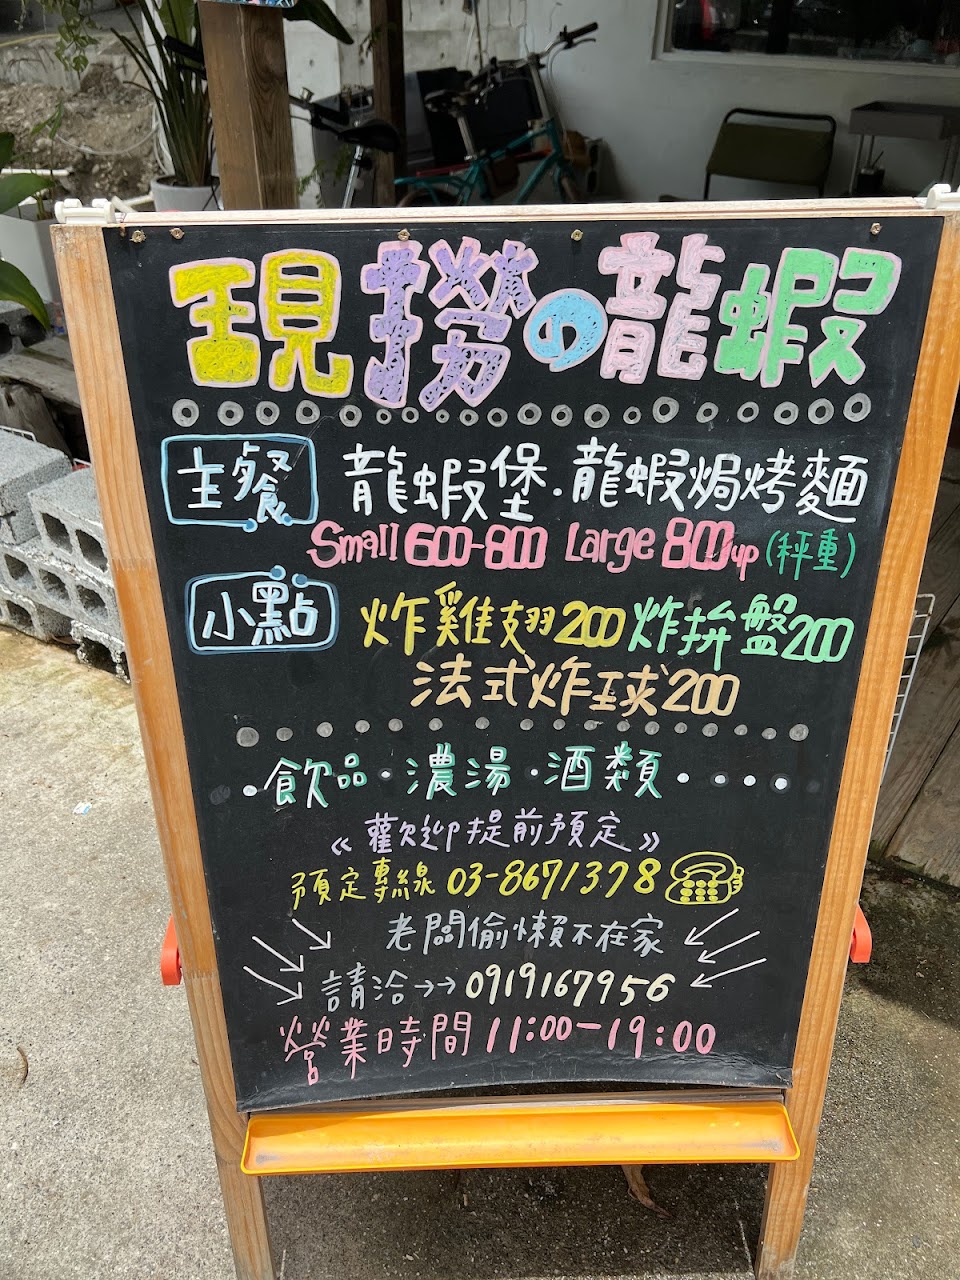 現撈の龍蝦
主餐 龍蝦堡.龍蝦焗烤麵
Small 600-800 Large 800up(秤重)
小點 炸雞翅200 炸拚盤200
法式炸球200
·飲品·濃湯·酒類·····
《歡迎提前預定》
預定專線 03-8671378
老闆偷懶不在家
請洽→→0919167956
營業時間11:00-19:00